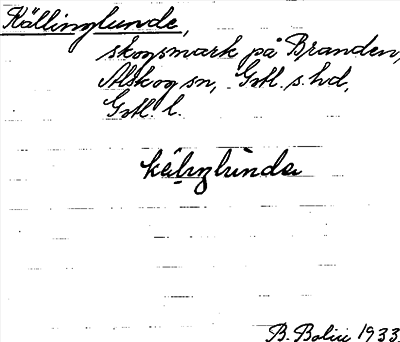 Källinglunde,
skogsmark på Branden,
Alskog sn, Gotl. s. hd,
Gotl. l.
B. Bolin 1933.